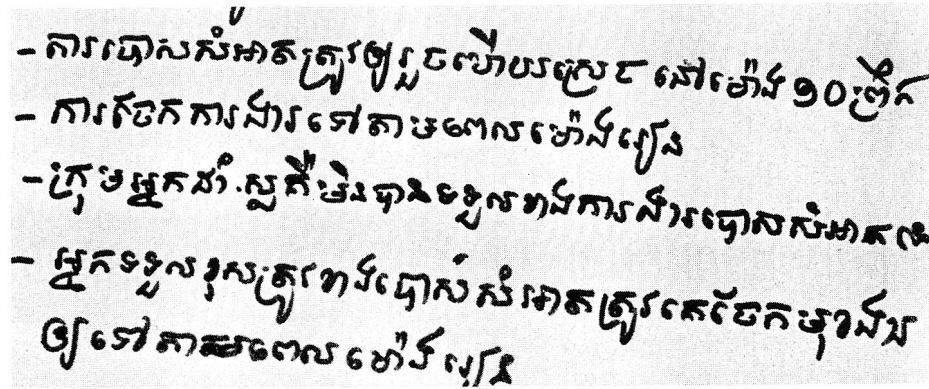 - ការបោសសំអាតត្រូវឲ្យរួចហើយស្រេច នៅម៉ោង ១០ព្រឹក
- ការចែកការងារទៅតាមពេលម៉ោងរៀន
- ក្រុមអ្នកដាំស្លគឺមិនបានទទួលខាងការងារបោសសំអាត
- អ្នកទទួលខុសត្រូវខាងបោសសំអាតត្រូវគេចែកមុខងារ
ឲ្យទៅតាមពេលម៉ោងរៀន